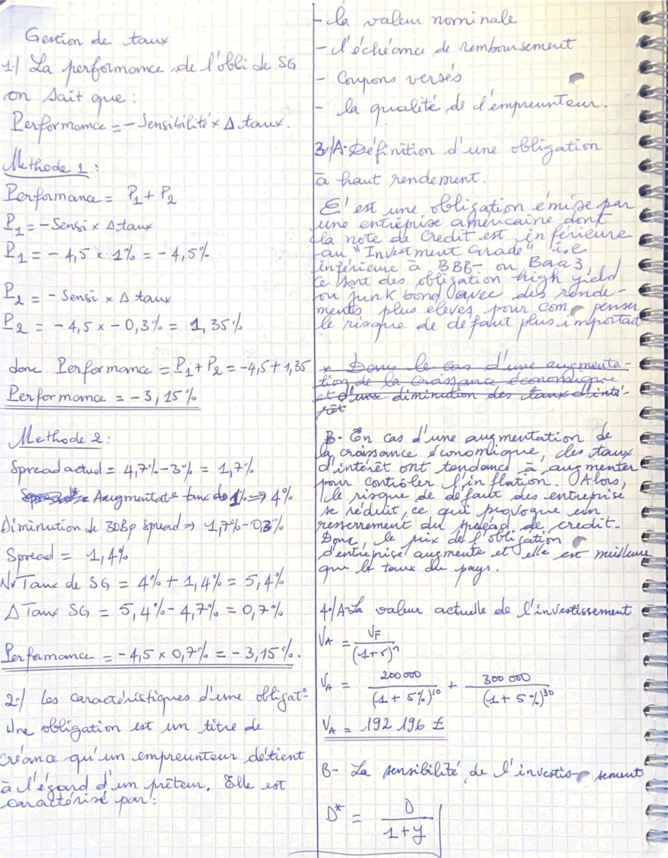 Gestion de taux
1/ La performance de l'obli de SG
on sait que :
Performance = - Sensibilité × Δ taux.
Methode 1 :
Performance = P1 + P2
P1 = - Sensi × Δ taux
P1 = - 4,5 × 1% = - 4,5%
P2 = - Sensi × Δ taux
P2 = - 4,5 × - 0,3% = 1,35%
donc Performance = P1 + P2 = -4,5 + 1,35
Performance = - 3,15%
Methode 2 :
Spread actuel = 4,7% - 3% = 1,7%
Augmentat° taux de 1% => 4%
Diminution de 30Bp spread => 1,7% - 0,3%
Spread = 1,4%
Nv Taux de SG = 4% + 1,4% = 5,4%
Δ Taux SG = 5,4% - 4,7% = 0,7%
Performance = - 4,5 × 0,7% = - 3,15%.
2/ Les caractéristiques d'une obligat°
Une obligation est un titre de
créance qu'un empreunteur détient
à l'égard d'un prêteur. Elle est
caractérisé par :
- la valeur nominale
- l'échéance de remboursement
- Coupons versés
- la qualité de l'empreunteur.
3/A- Définition d'une obligation
à haut rendement.
C'est une obligation émise par
une entreprise américaine dont
la note de Credit est inférieure
au "Investment Grade" i.e
inférieure à BBB- ou Baa3,
ce sont des obligation high yield
ou junk bond avec des rende-
ments plus élevés pour compenser
le risque de défaut plus important
* Dans le cas d'une augmenta-
tion de la croissance économique
et d'une diminution des taux d'inté-
rêt
B- En cas d'une augmentation de
la croissance économique, les taux
d'intérêt ont tendance à augmenter
pour contrôler l'inflation. Alors,
le risque de défaut des entreprise
se réduit, ce qui provoque un
resserrement du spread de credit.
Donc, le prix de l'obligation
d'entreprise augmente et elle est meilleure
que le taux du pays.
4/A- La valeur actuelle de l'investissement
VA = VF / (1+r)^n
VA = 200 000 / (1 + 5%)^10 + 300 000 / (1 + 5%)^30
VA = 192 196 £
B- La sensibilité de l'investissement
D* = D / 1+y